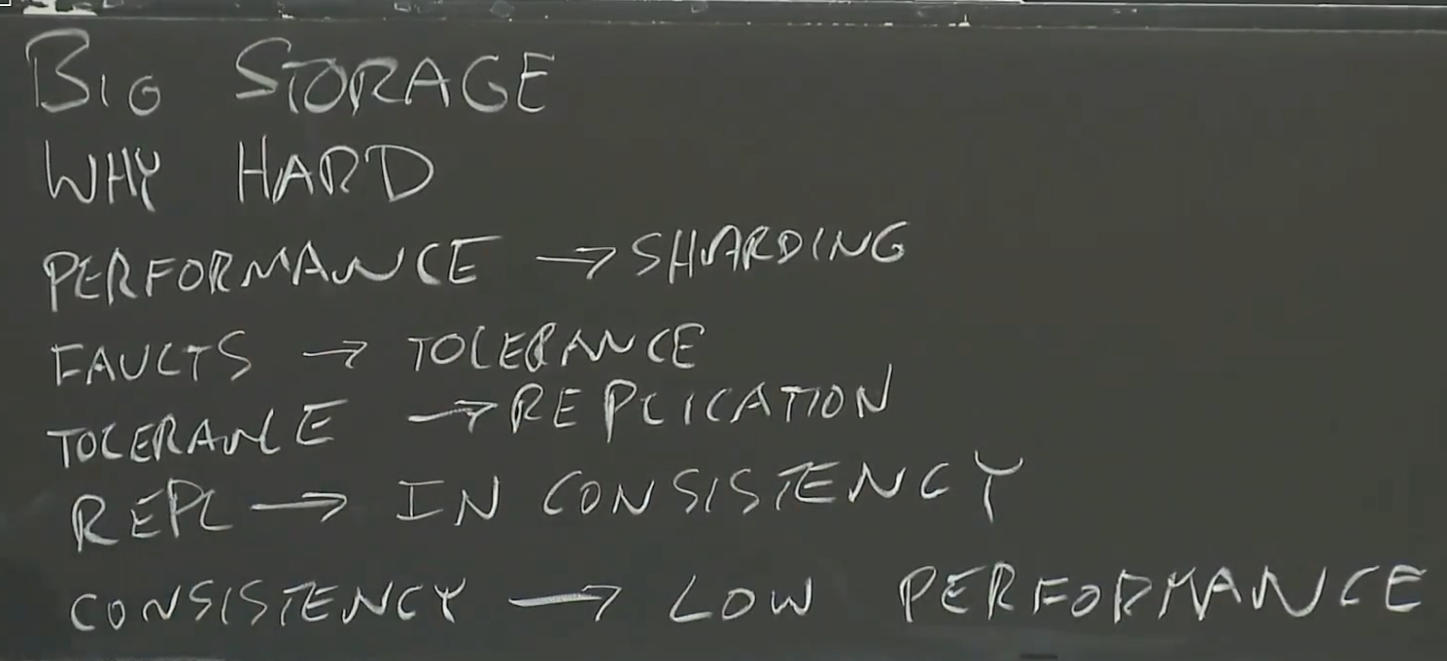 BIG STORAGE
WHY HARD
PERFORMANCE → SHARDING
FAULTS → TOLERANCE
TOLERANCE → REPLICATION
REPL → IN CONSISTENCY
CONSISTENCY → LOW PERFORMANCE